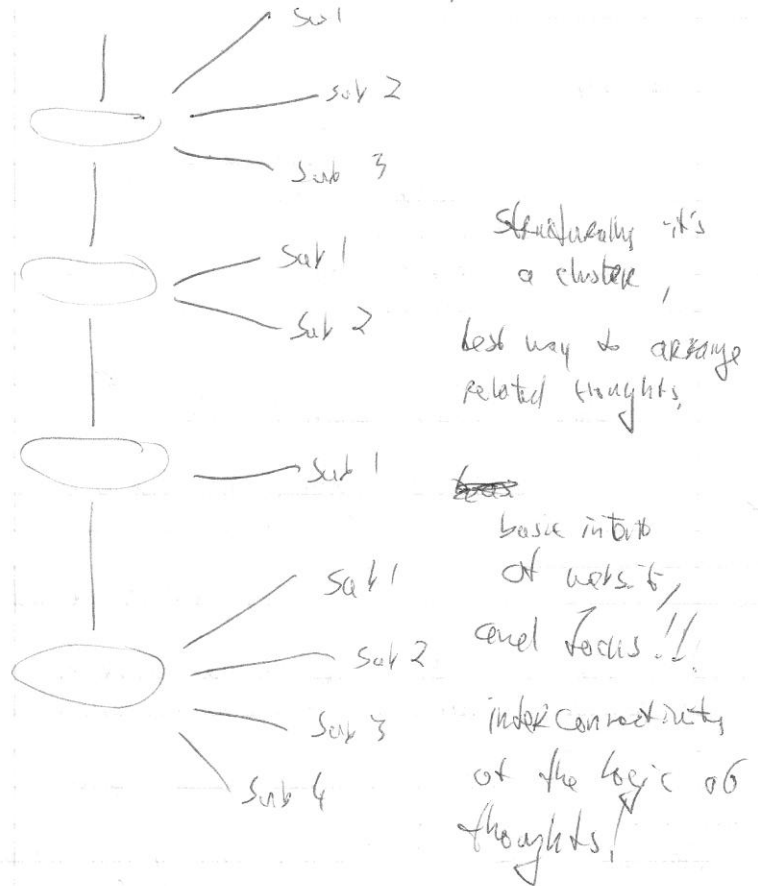 Sub 1
sub 2
Sub 3
Sub 1
Sub 2
Sub 1
Sub 1
Sub 2
Sub 3
Sub 4
Structurally it's
a cluster,
best way to arrange
related thoughts,
basic intent
of website,
and focus!!
interconnectivity
of the logic of
thoughts!